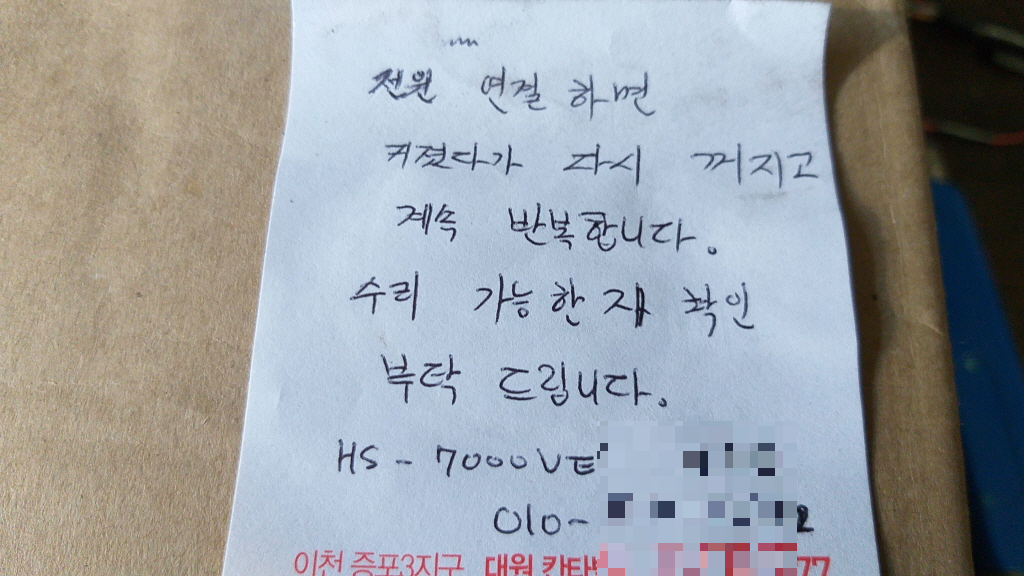 전원 연결 하면
켜졌다가 다시 꺼지고
계속 반복합니다.
수리 가능한지 확인
부탁 드립니다.
HS-7000VE
010-
이천 증포3지구 대원 칸타빌
77